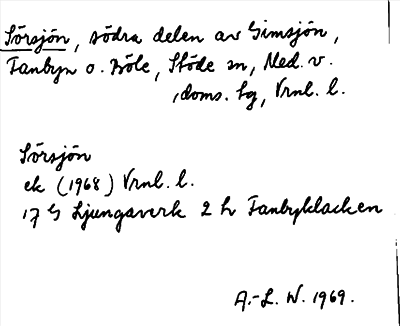 Sörsjön, södra delen av Gimsjön,
Fanbyn o. Böle, Stöde sn, Med. v.
doms. tg, Vrnl. l.
Sörsjön
ek (1968) Vrnl. l.
17 G Ljungaverk 2 h Fanbyklacken
A.-L. W. 1969.